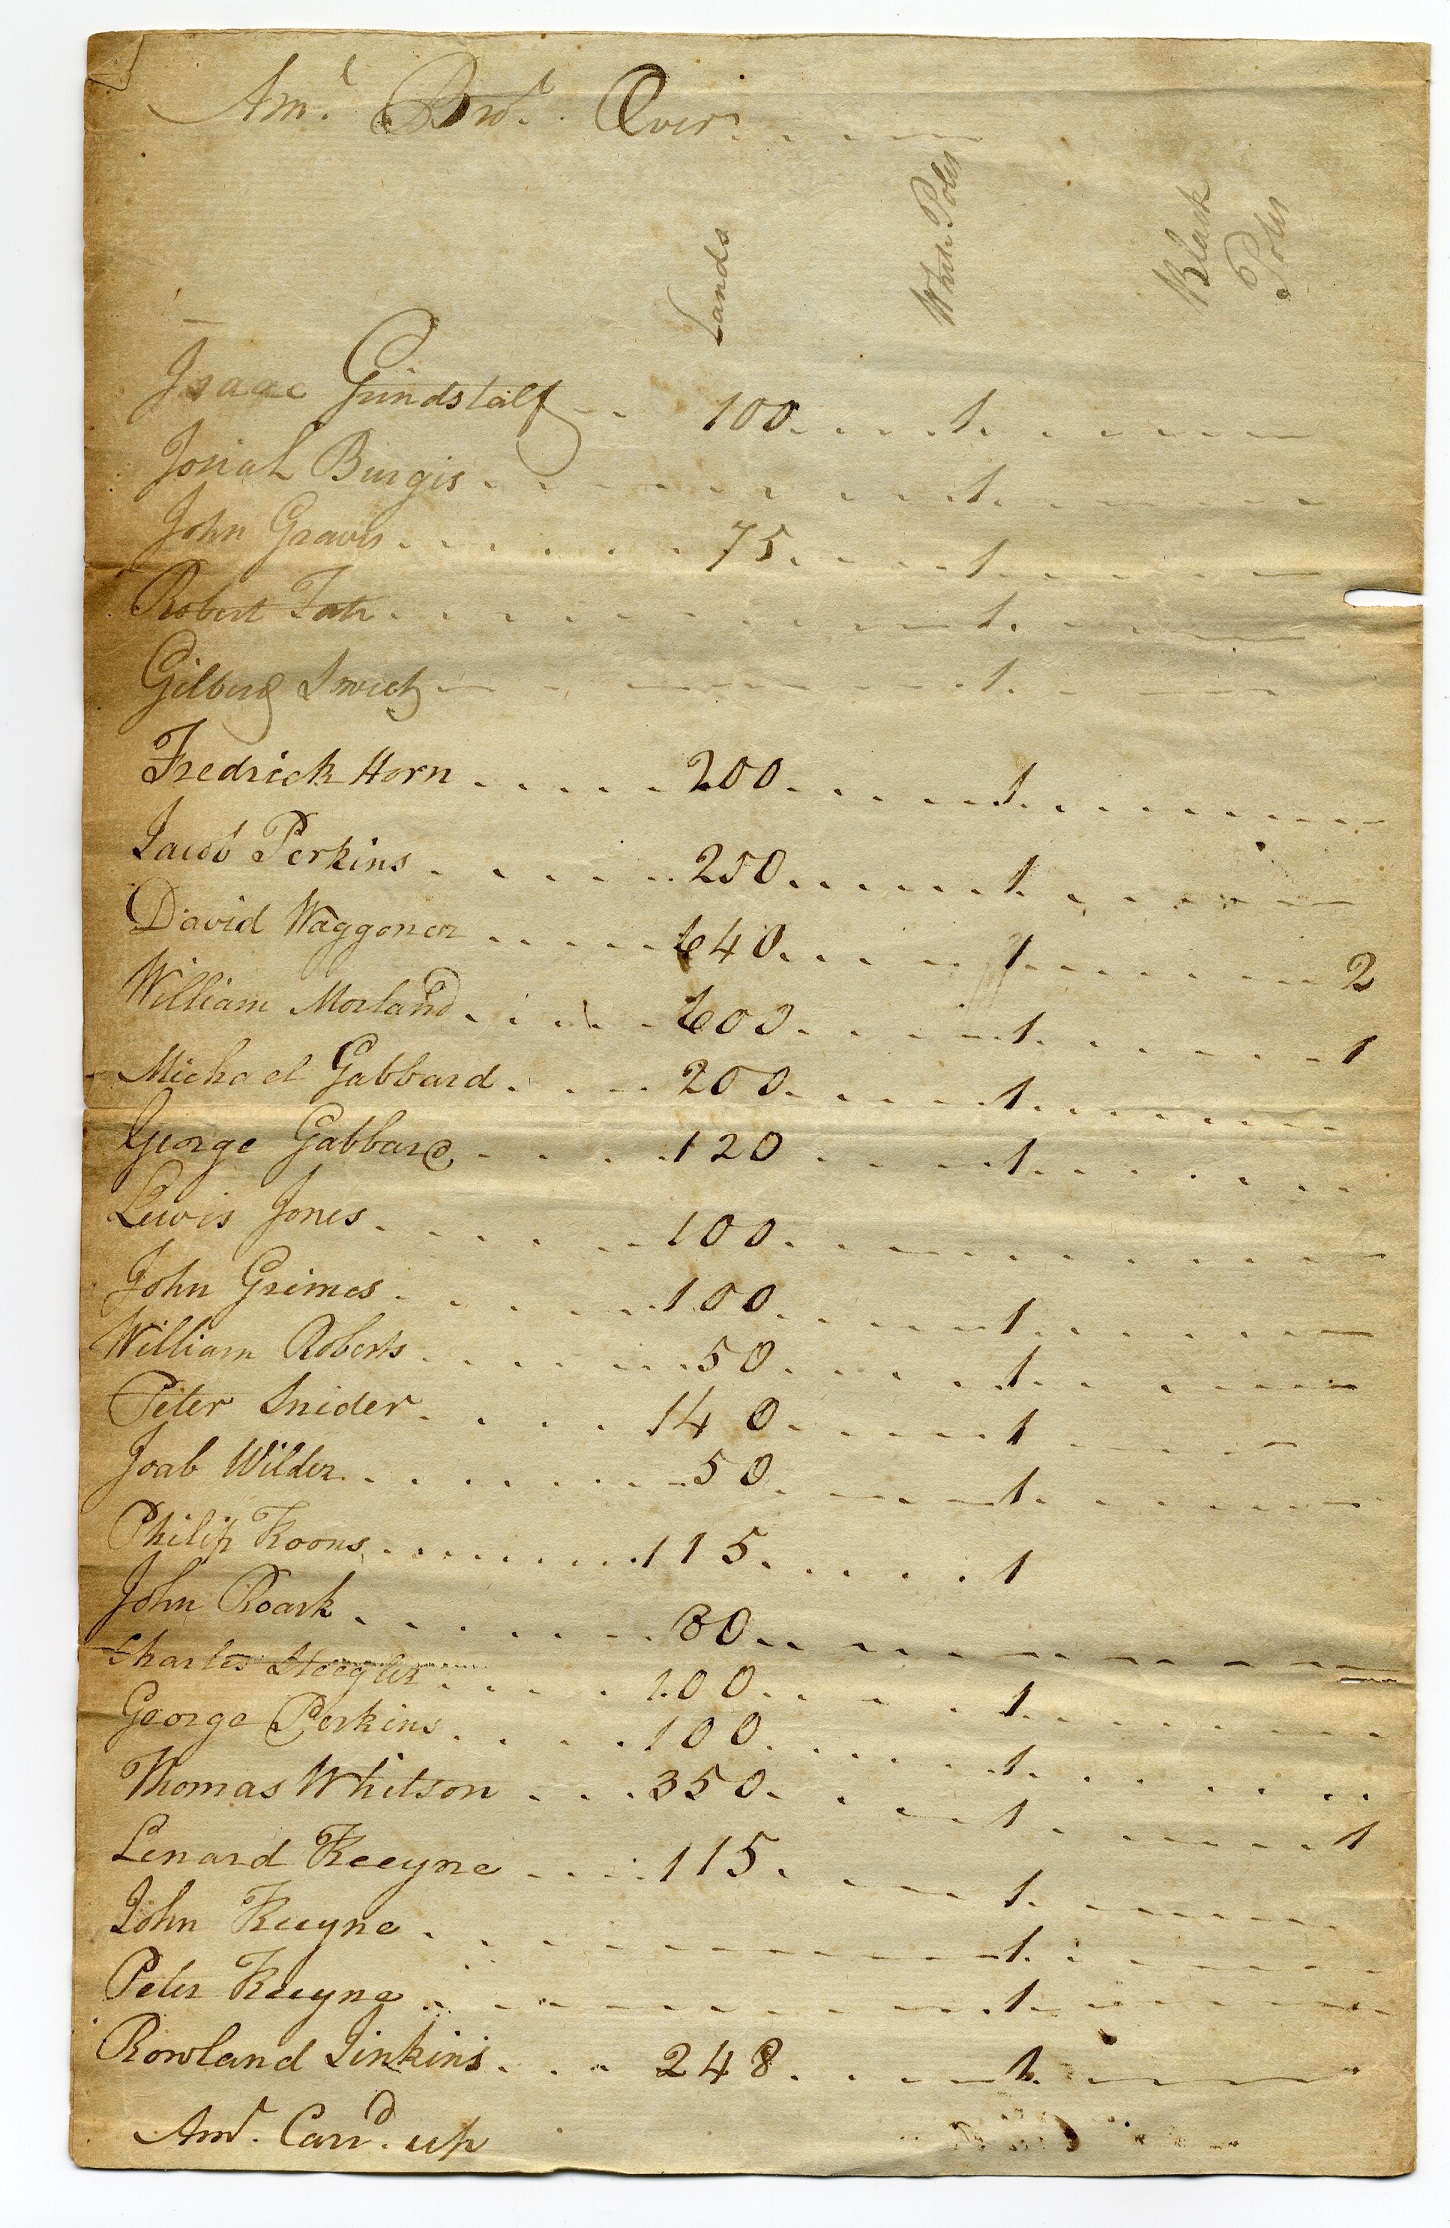 Amt. Brot. Over
Lands White Poles Black Poles
Isaac Grindstaff 100 1
Josiah Burgis 1
John Graves 75 1
Robert Tate 1
Gilbert Sweet 1
Fredrick Horn 200 1
Jacob Perkins 250 1
David Waggoner 640 1 2
William Morland 600 1 1
Michael Gabbard 200 1
George Gabbard 120 1
Lewis Jones 100
John Grimes 100 1
William Roberts 50 1
Peter Snider 140 1
Joab Wilder 50 1
Philip Koons 115 1
John Roark 80
Charles 100 1
George Perkins 100 1
Thomas Whitson 350 1 1
Lenard Keeyne 115 1
John Keeyne 1
Peter Keeyne 1
Rowland Jinkins 248 1
Amt. Carrd. up